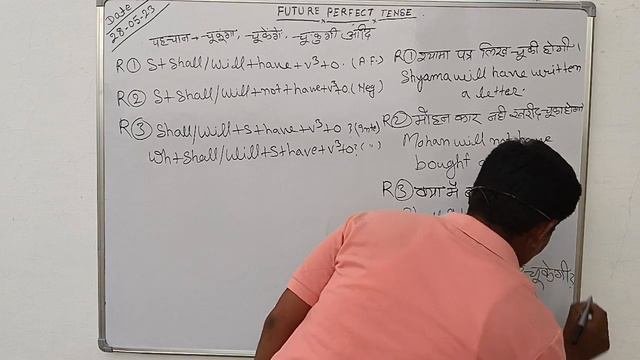 Date
28-05-23
FUTURE PERFECT TENSE.
पहचान → चूकूंगा, चूकेंगे, चूकुंगी आदि
R① S+shall/will+have+V³+O. (Aff.)
R② S+shall/will+not+have+V³+O (Neg)
R③ Shall/will+S+have+V³+O ? (Inte)
Wh+shall/will+S+have+V³+O? (")
R① श्यामा पत्र लिख चूकी होगी।
Shyama will have written
a letter.
R② मोहन कार नही खरीद चूका होगा
Mohan will not have
bought
R③ क्या मैं
चूकेगी